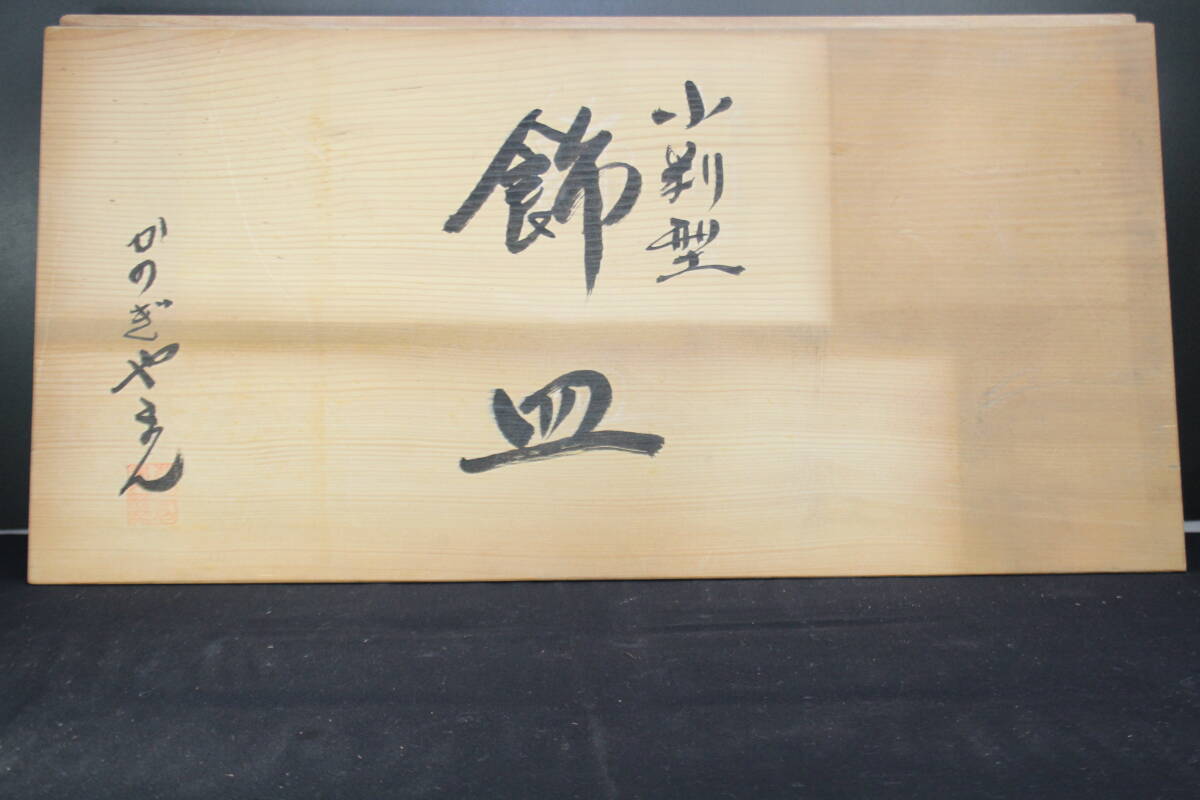 小判型
飾皿
かのぎやまん